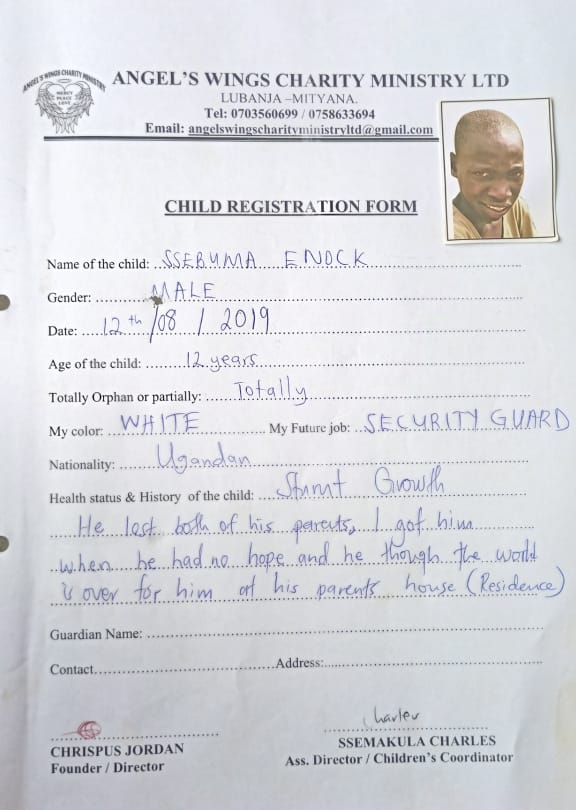 ANGEL'S WINGS CHARITY MINISTRY
MERCY
PEACE
LOVE
ANGEL'S WINGS CHARITY MINISTRY LTD
LUBANJA –MITYANA.
Tel: 0703560699 / 0758633694
Email: angelswingscharityministryltd@gmail.com
CHILD REGISTRATION FORM
Name of the child: SSEBUMA ENOCK
Gender: MALE
Date: 12th /08 / 2019
Age of the child: 12 years
Totally Orphan or partially: Totally
My color: WHITE My Future job: SECURITY GUARD
Nationality: Ugandan
Health status & History of the child: Stunt Growth
He lost both of his parents, I got him
when he had no hope and he though the world
is over for him at his parents house (Residence)
Guardian Name:
Contact Address:
Charles
CHRISPUS JORDAN
Founder / Director
SSEMAKULA CHARLES
Ass. Director / Children's Coordinator